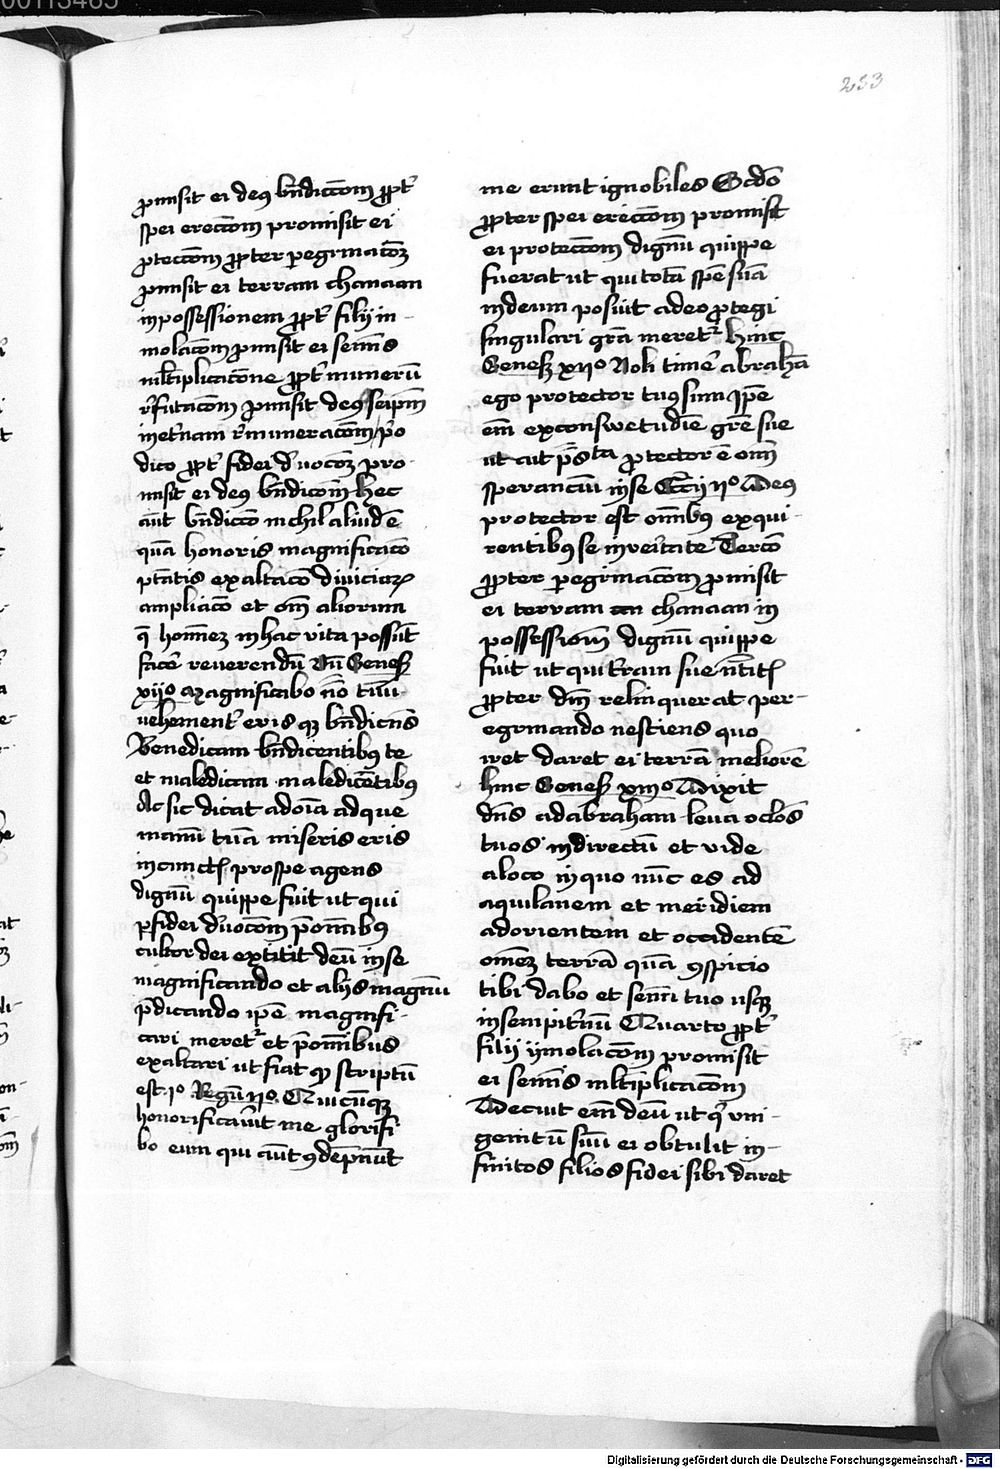 00113465
233
ꝓmisit ei deꝰ bn̄dicc̄om ꝓpt᷑
spei erecc̄om promisit ei
ꝓtecc̄om ꝓpter ꝑegrinac̄oꝫ
ꝓmisit ei terram chanaan
in possessionem ꝓpt᷑ filij in-
molac̄om ꝓmisit ei sem̄is
ml̄tiplicac̄one ꝓpt᷑ munerū
r̄futac̄om ꝓmisit deꝰ seip̄m
in et᷑nam r̄munerac̄om pͦ
dico ꝓpt᷑ fidei d᷑uoc̄oꝫ pro-
misit ei deꝰ bn̄dic̄om hec
aūt bn̄dicc̄o nichil aliud ē
quā honoris magnificac̄o
ptātis exaltac̄o diuiciaꝝ
ampliac̄o et om̄ aliorum
q̄ hom̄eꝫ in hac vita possūt
fac̄e reuerendū Vn̄ Geneſꝭ
xijͦ Magnificabo nō tuū
vehement᷑ erisqꝫ bn̄dictꝰ
Benedicam bn̄dicentibꝰ te
et maledicam maledicētibꝰ
Ac sic dicat ad oīa ad que
manū tuā miseris eris
in cunctꝭ prospe agens
dignū quippe fuit ut qui
ꝑ fidei d᷑uoc̄om p̄ om̄ibꝰ
cultor dei extitit deū in se
magnificando et alijs magnū
p̄dicando ip̄e magnifi-
cari meret᷑ et p̄ om̄ibus
exaltari ut fiat qͦ scriptū
est iͦ Regū ijͦ Quicūqꝫ
honorificau᷑it me glorifi
bo eum qui aūt ꝯtēpnūt
me erunt ignobiles Scd̄o
ꝓpter spei erecc̄om promisit
ei protecc̄om dignū quippe
fuerat ut qui totā spē suā
in deum posuit a deo ꝓtegi
singulari gr̄a meret᷑ hinc
Geneſꝭ xvͦ Noli timē abrahā
ego protector tuꝰ sum ip̄e
em̄ ex consuetudīe gr̄e sue
ꝓtector ē om̄
sperancium in se Deꝰ
protector est om̄ibꝰ exqui-
rentibꝰ se in veritate Tercͦ
ꝓpter ꝑegrinac̄om ꝓmisit
ei terram chanaan in
possessiom̄ dignū quippe
fuit ut qui t᷑ram sue
ꝓpter dm̄ relinquerat per-
egrinando nesciens quo
iret daret ei terrā meliorē
hinc Geneſꝭ xiijͦ Dixit
dn̄s ad abraham leua oclōs
tuos in directū et vide
a loco in quo nūc es ad
aquilonem et meridiem
ad orientem et occidentē
om̄eꝫ terrā quā ꝯspicis
tibi dabo et sem̄i tuo usqꝫ
in sempit᷑nū Quarto ꝓpt᷑
filij ymolac̄om promisit
ei sem̄is ml̄tiplicac̄om
Decuit em̄ deū ut qͥ vni-
genitū suū ei obtulit in-
finitos filios fidei sibi daret
Digitalisierung gefördert durch die Deutsche Forschungsgemeinschaft - DFG